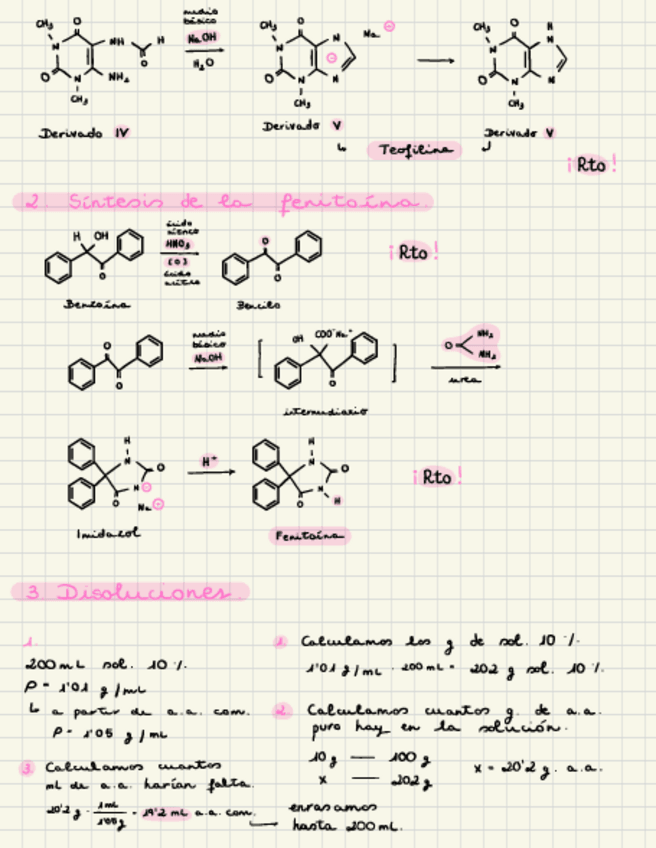 CH₃ O NH H O
medio
básico
NaOH
H₂O
O N N NH₂
CH₃
CH₃ O N N O N N CH₃
Na ⊖
⊖
CH₃ O H N N O N N CH₃
Derivado IV
Derivado V
Derivado V
↳ Teofilina
¡Rto!
2. Síntesis de la fenitoína.
H OH O
ácido
HNO₃
[O]
ácido
O O
¡Rto!
Benzoína
Bencilo
O O
medio
básico
NaOH
[ OH COO⁻Na⁺ O ]
O NH₂ NH₂
urea
intermediario
H N O N ⊖ O
Na ⊖
H⁺
H N O N H O
¡Rto!
Imidazol
Fenitoína
3. Disoluciones.
1.
200 mL sol. 10 %
ρ = 1'01 g/mL
↳ a partir de a.a. com.
ρ = 1'05 g/mL
1. Calculamos los g de sol. 10 %.
1'01 g/mL · 200 mL = 202 g sol. 10 %.
2. Calculamos cuantos g. de a.a.
puro hay en la solución.
10 g — 100 g
x — 202 g
x = 20'2 g. a.a.
3. Calculamos cuantos
mL de a.a. harían falta.
20'2 g · 1mL / 1'05g = 19'2 mL a.a. com.
enrasamos
hasta 200 mL.